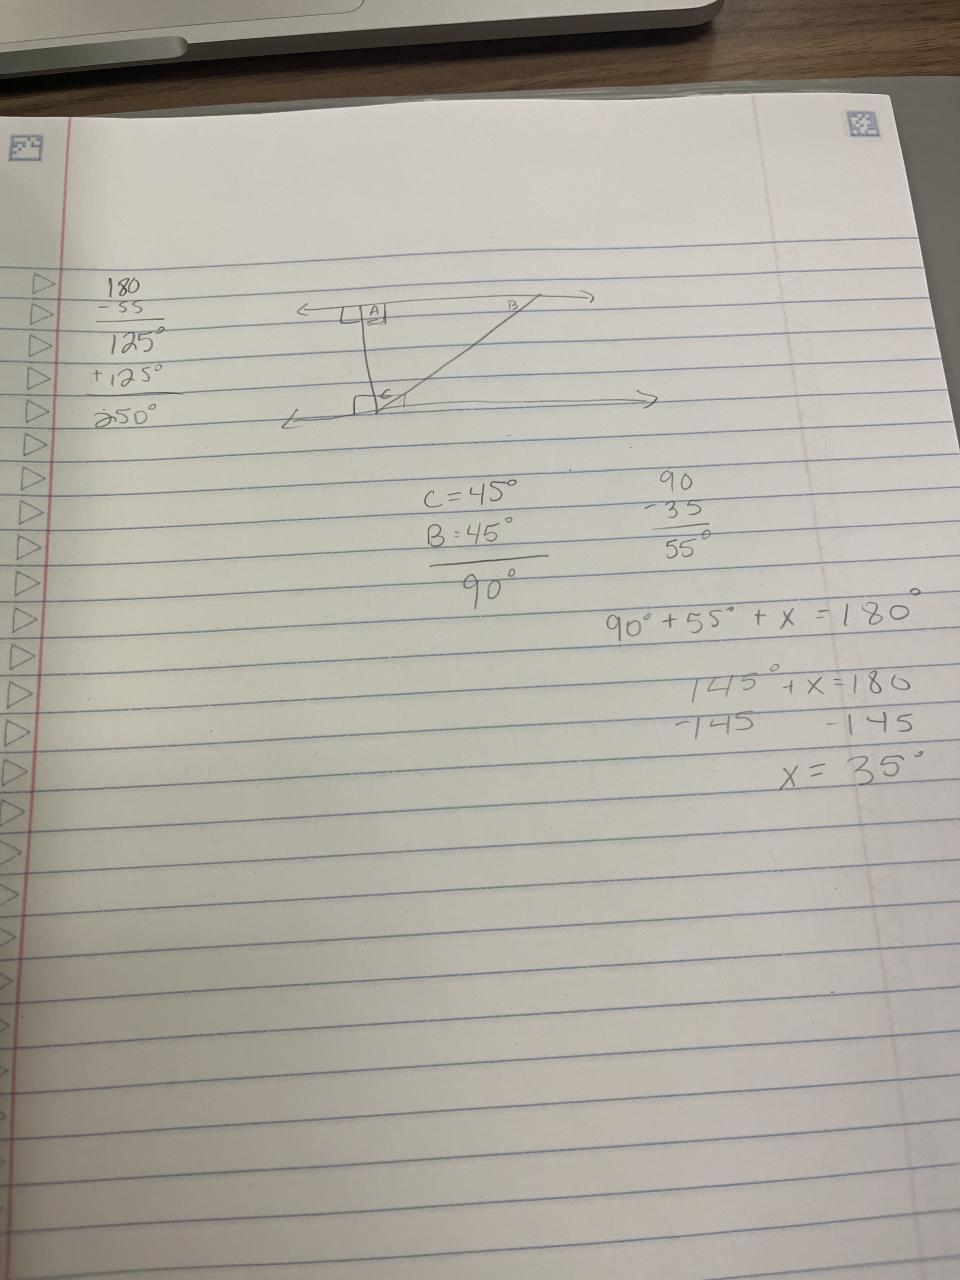 180
- 55
125°
+125°
250°
A
B
C
C = 45°
B = 45°
90°
90
-35
55°
90° + 55° + x = 180°
145° + x = 180
-145 -145
x = 35°